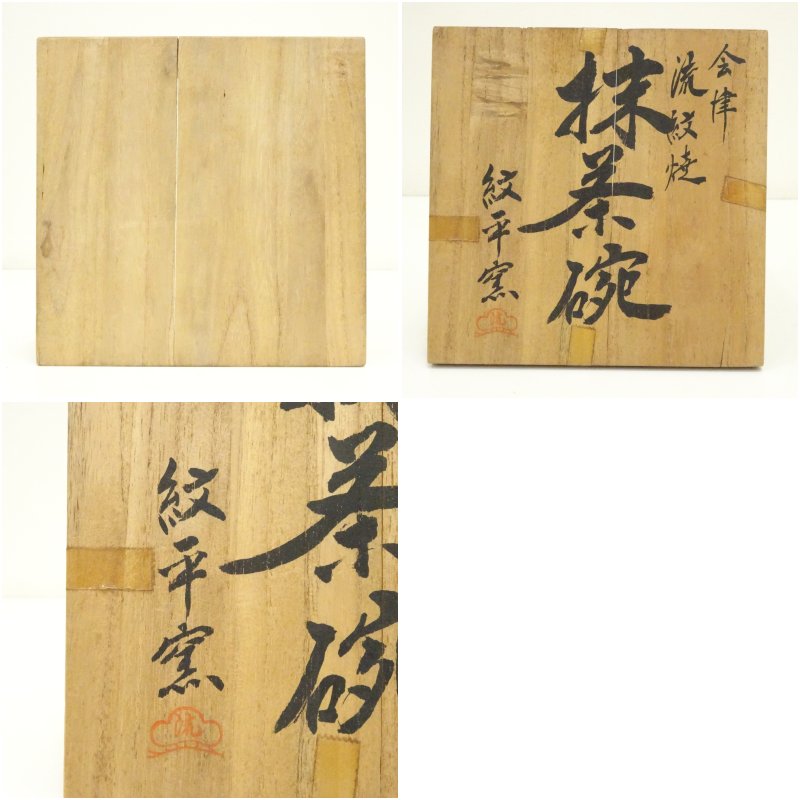 会津
流紋焼
抹茶碗
紋平窯
流
紋平窯
茶
碗
流